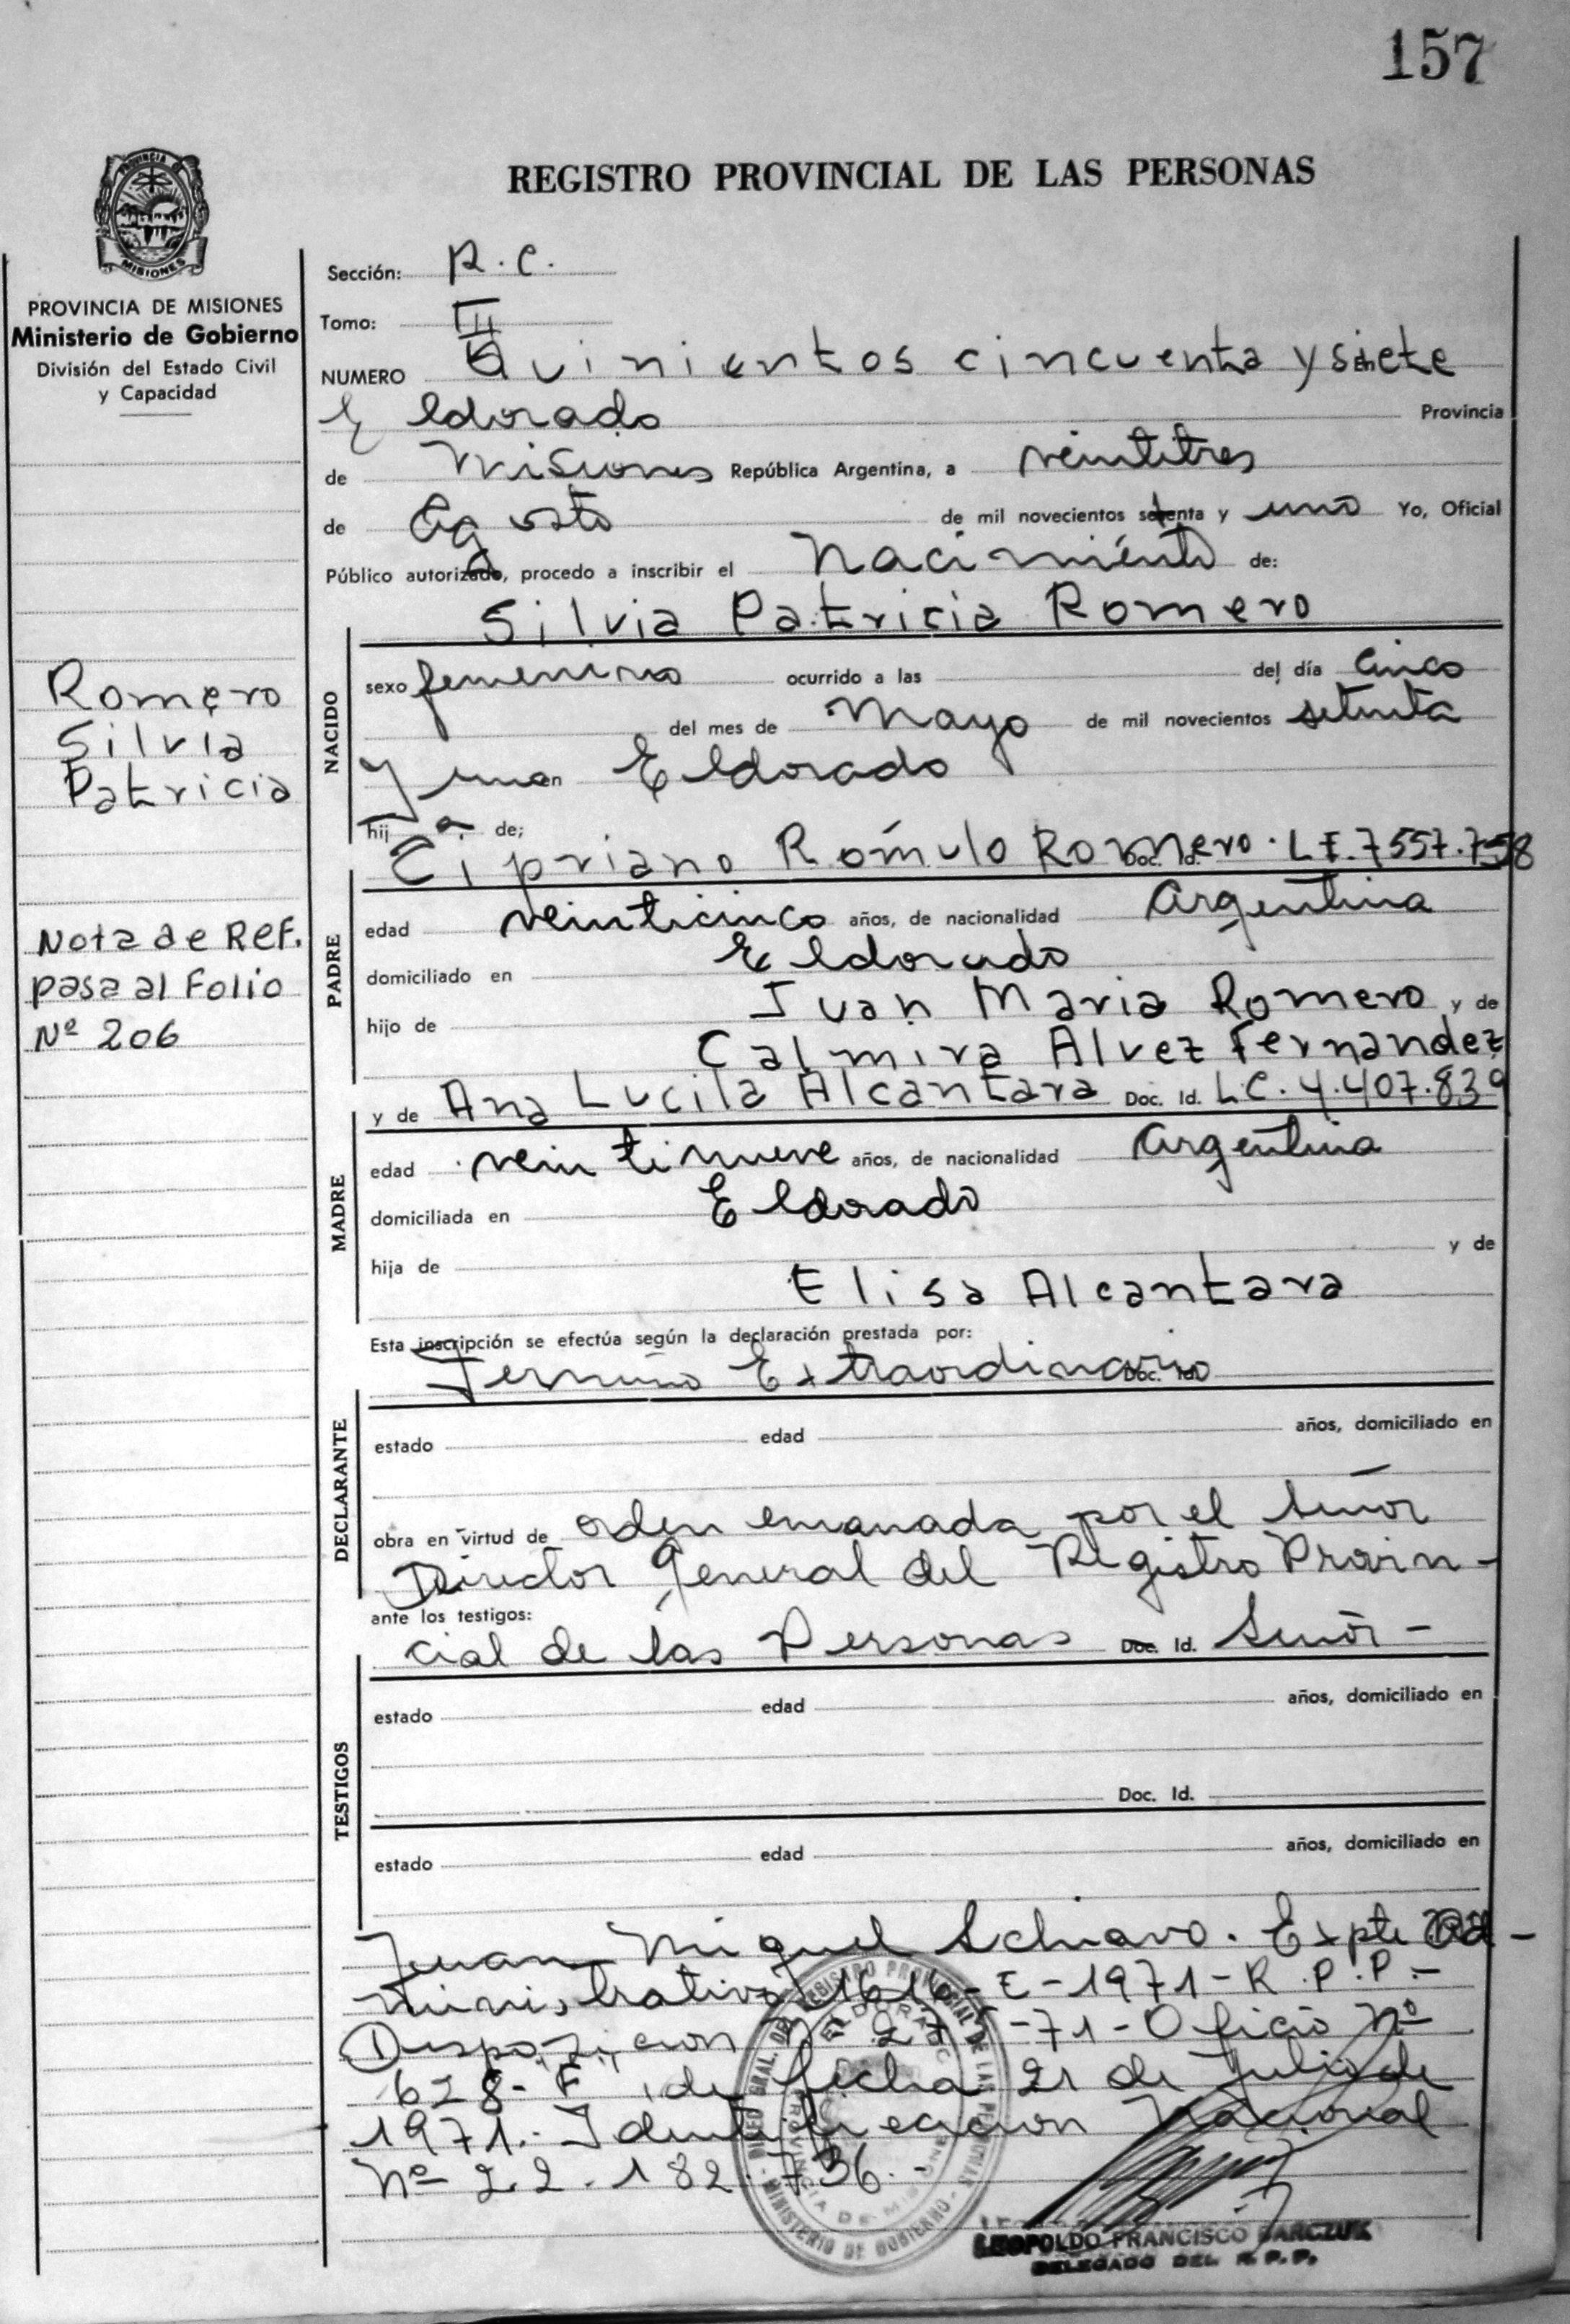 157
REGISTRO PROVINCIAL DE LAS PERSONAS
PROVINCIA MISIONES
PROVINCIA DE MISIONES
Ministerio de Gobierno
División del Estado Civil
y Capacidad
Romero
Silvia
Patricia
Nota de Ref.
pasa al Folio
Nº 206
Sección: R.C.
Tomo: III
NUMERO Quinientos cincuenta y siete
Eldorado Provincia
de Misiones República Argentina, a veintitres
de Agosto de mil novecientos setenta y uno Yo, Oficial
Público autorizado, procedo a inscribir el Nacimiento de:
Silvia Patricia Romero
NACIDO
sexo femenino ocurrido a las del día cinco
del mes de Mayo de mil novecientos setenta
y uno en Eldorado
hij a. de;
Cipriano Rómulo Romero. Doc. Id. L.E. 7557.758
PADRE
edad veinticinco años, de nacionalidad Argentina
domiciliado en Eldorado
hijo de Juan Maria Romero y de
Calmira Alvez Fernandez
y de Ana Lucila Alcantara Doc. Id. L.C. 4.407.839
MADRE
edad veintinueve años, de nacionalidad Argentina
domiciliada en Eldorado
hija de y de
Elisa Alcantara
Esta inscripción se efectúa según la declaración prestada por:
Termino Extraordinario Doc. Id.
DECLARANTE
estado edad años, domiciliado en
obra en virtud de orden emanada por el Señor
Director General del Registro Provin-
ante los testigos:
cial de las Personas Doc. Id. Señor-
TESTIGOS
estado edad años, domiciliado en
Doc. Id.
estado edad años, domiciliado en
Juan Miguel Schiavo. Expte Ad-
ministrativo 1616-E-1971-R.P.P.-
Disposicion Nº -71-Oficio Nº
628-F de fecha 21 de Julio de
1971.- Identificacion Nacional
Nº 22.182.736.-
DIREC. GRAL. DEL REGISTRO PROVINCIAL DE LAS PERSONAS
MINISTERIO DE GOBIERNO
ELDORADO
PROVINCIA DE MISIONES
LEOPOLDO FRANCISCO BARCZUK
DELEGADO DEL R.P.P.